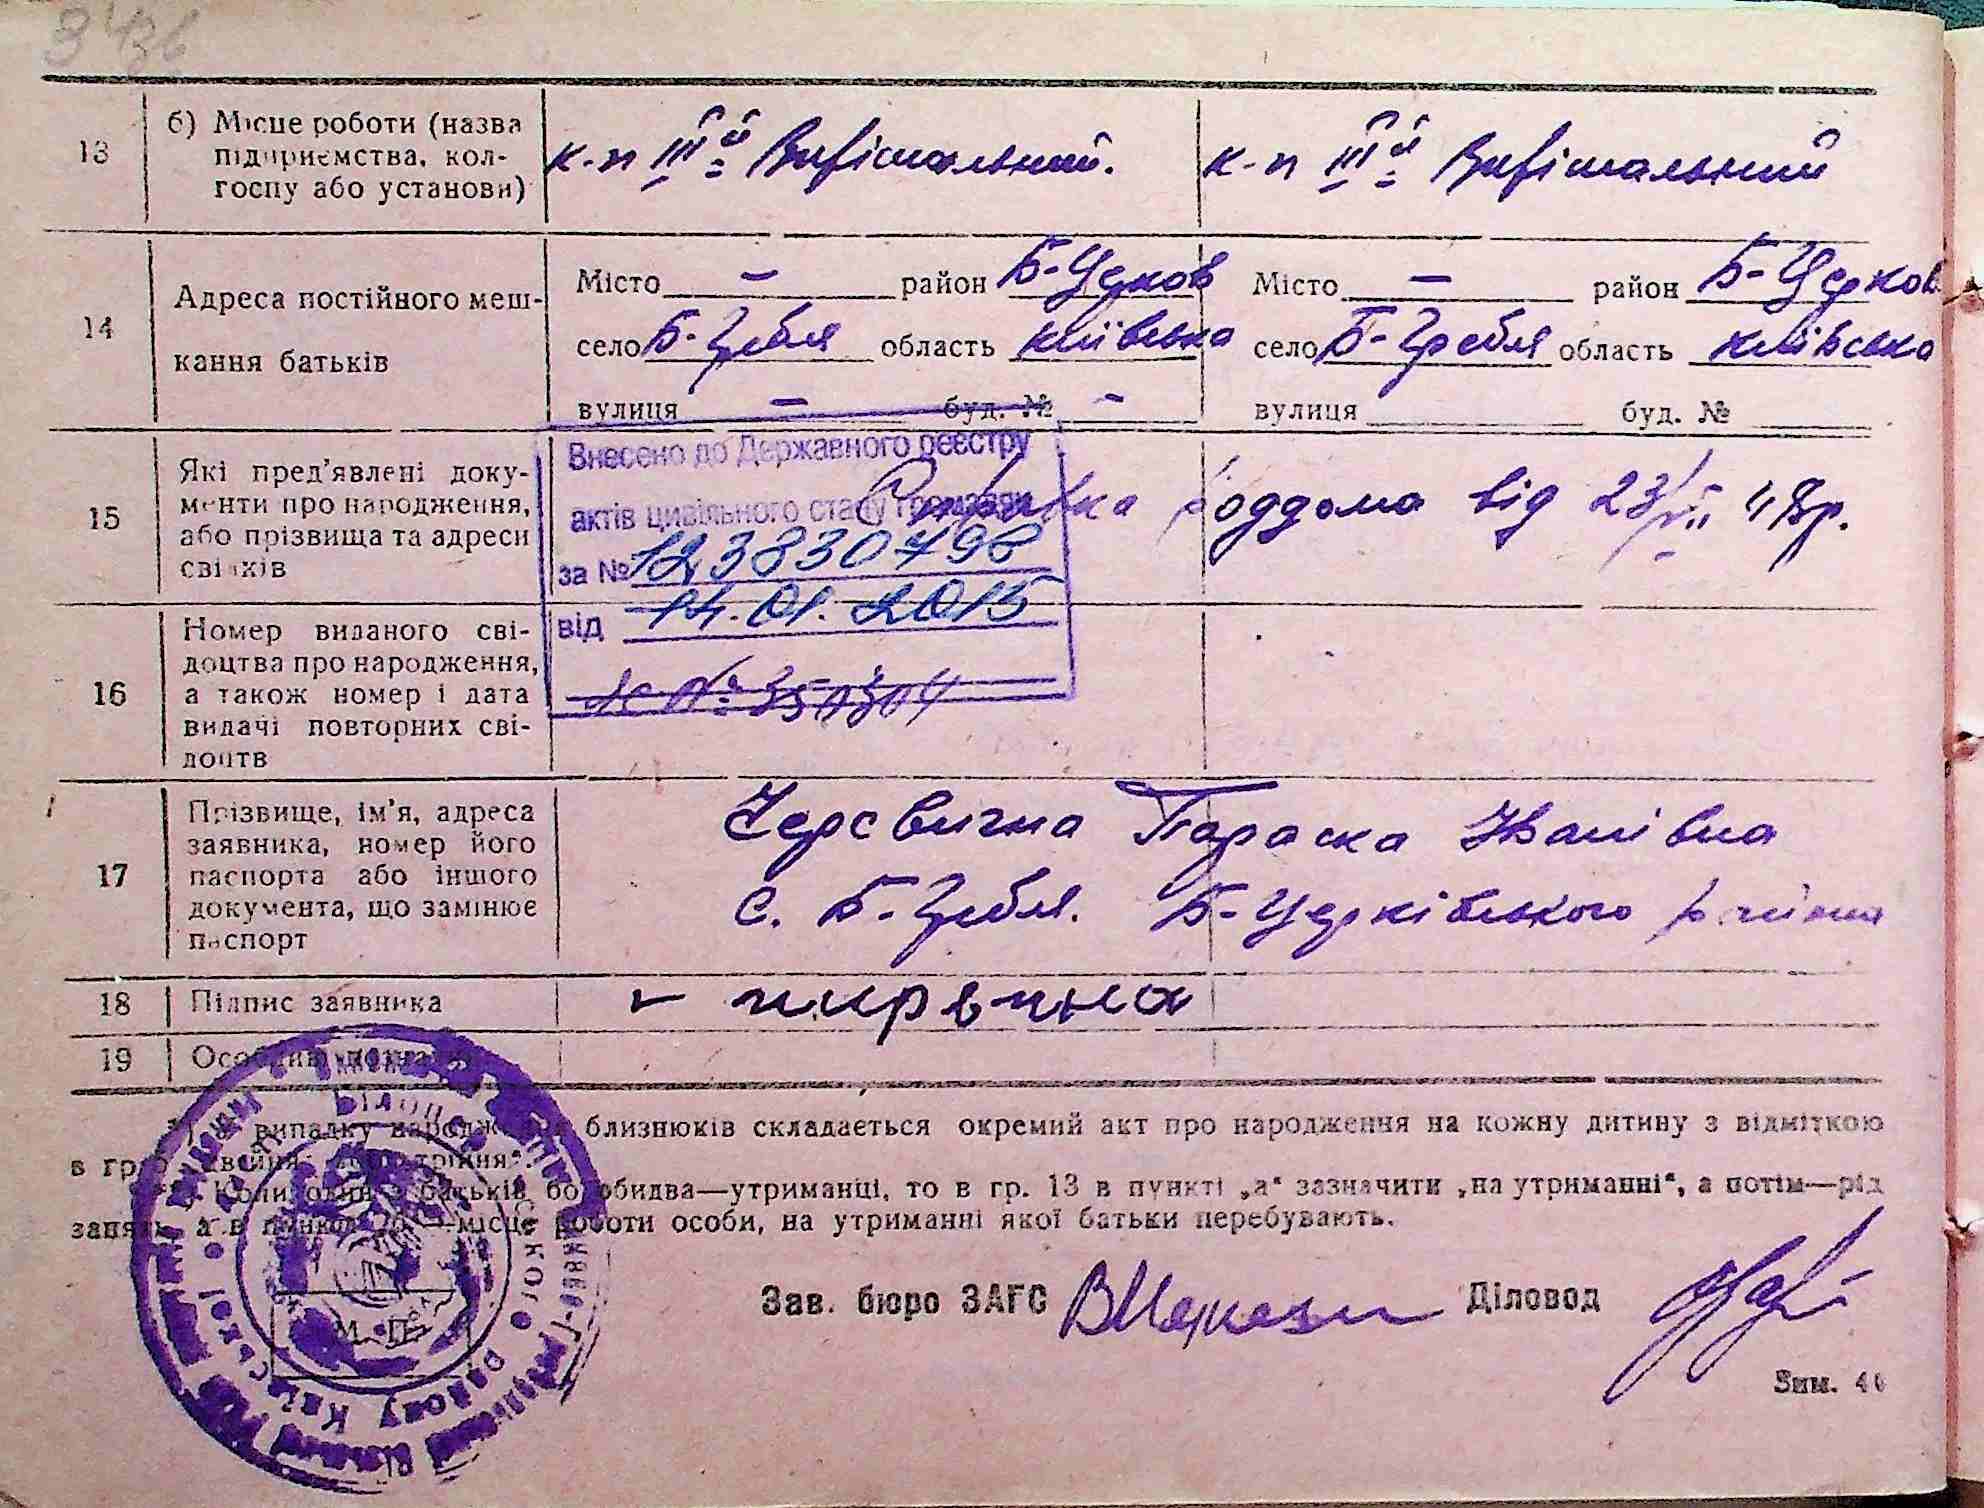 13 б) Місце роботи (назва підприємства, колгоспу або установи)
к-п ІІІй Вирішальний.
к-п ІІІй Вирішальний
14 Адреса постійного мешкання батьків
Місто — район Б-Церков
село Б-Гребля область київська
вулиця — буд. № -
Місто — район Б-Церков
село Б-Гребля область київська
вулиця буд. №
15 Які пред'явлені документи про народження, або прізвища та адреси свідків
Довідка роддома від 23/VII 48р.
Внесено до Державного реєстру
актів цивільного стану громадян
за № 123830798
від 14.01.2015
16 Номер виданого свідоцтва про народження, а також номер і дата видачі повторних свідоцтв
17 Прізвище, ім'я, адреса заявника, номер його паспорта або іншого документа, що замінює паспорт
Черевична Параска Іванівна
с. Б-Гребля. Б-Церківського району
18 Підпис заявника
19 Особливі
випадку народження близнюків складається окремий акт про народження на кожну дитину з відміткою
в гр.
Коли один з батьків або обидва—утриманці, то в гр. 13 в пункті „а“ зазначити „на утриманні“, а потім—рід
занять, а в пункті місце роботи особи, на утриманні якої батьки перебувають.
Зав. бюро ЗАГС
Діловод
М. П.
району Київської